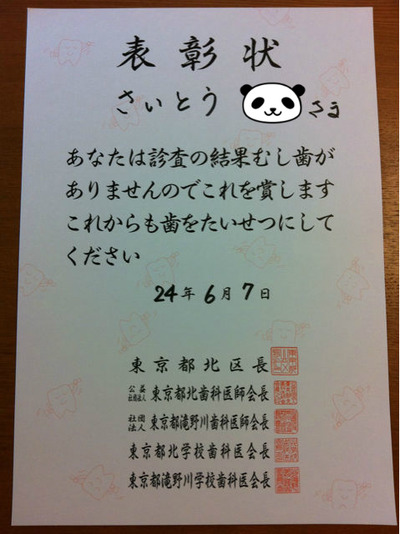 表彰状
さいとう さま
あなたは診査の結果むし歯が
ありませんのでこれを賞します
これからも歯をたいせつにして
ください
24年6月7日
東京都北区長
公益社団法人 東京都北歯科医師会長
社団法人 東京都滝野川歯科医師会長
東京都北学校歯科医会長
東京都滝野川学校歯科医会長